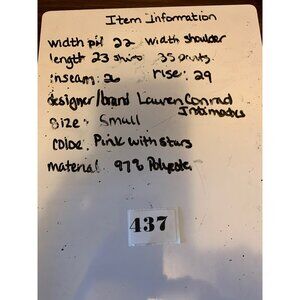 Item Information
width pit 22 width shoulder
length 23 shirt 35 pants
inseam: rise: 29
designer/brand Lauren Conrad
Intimates
Size: Small
color: Pink with stars
material 97% Polyester
437